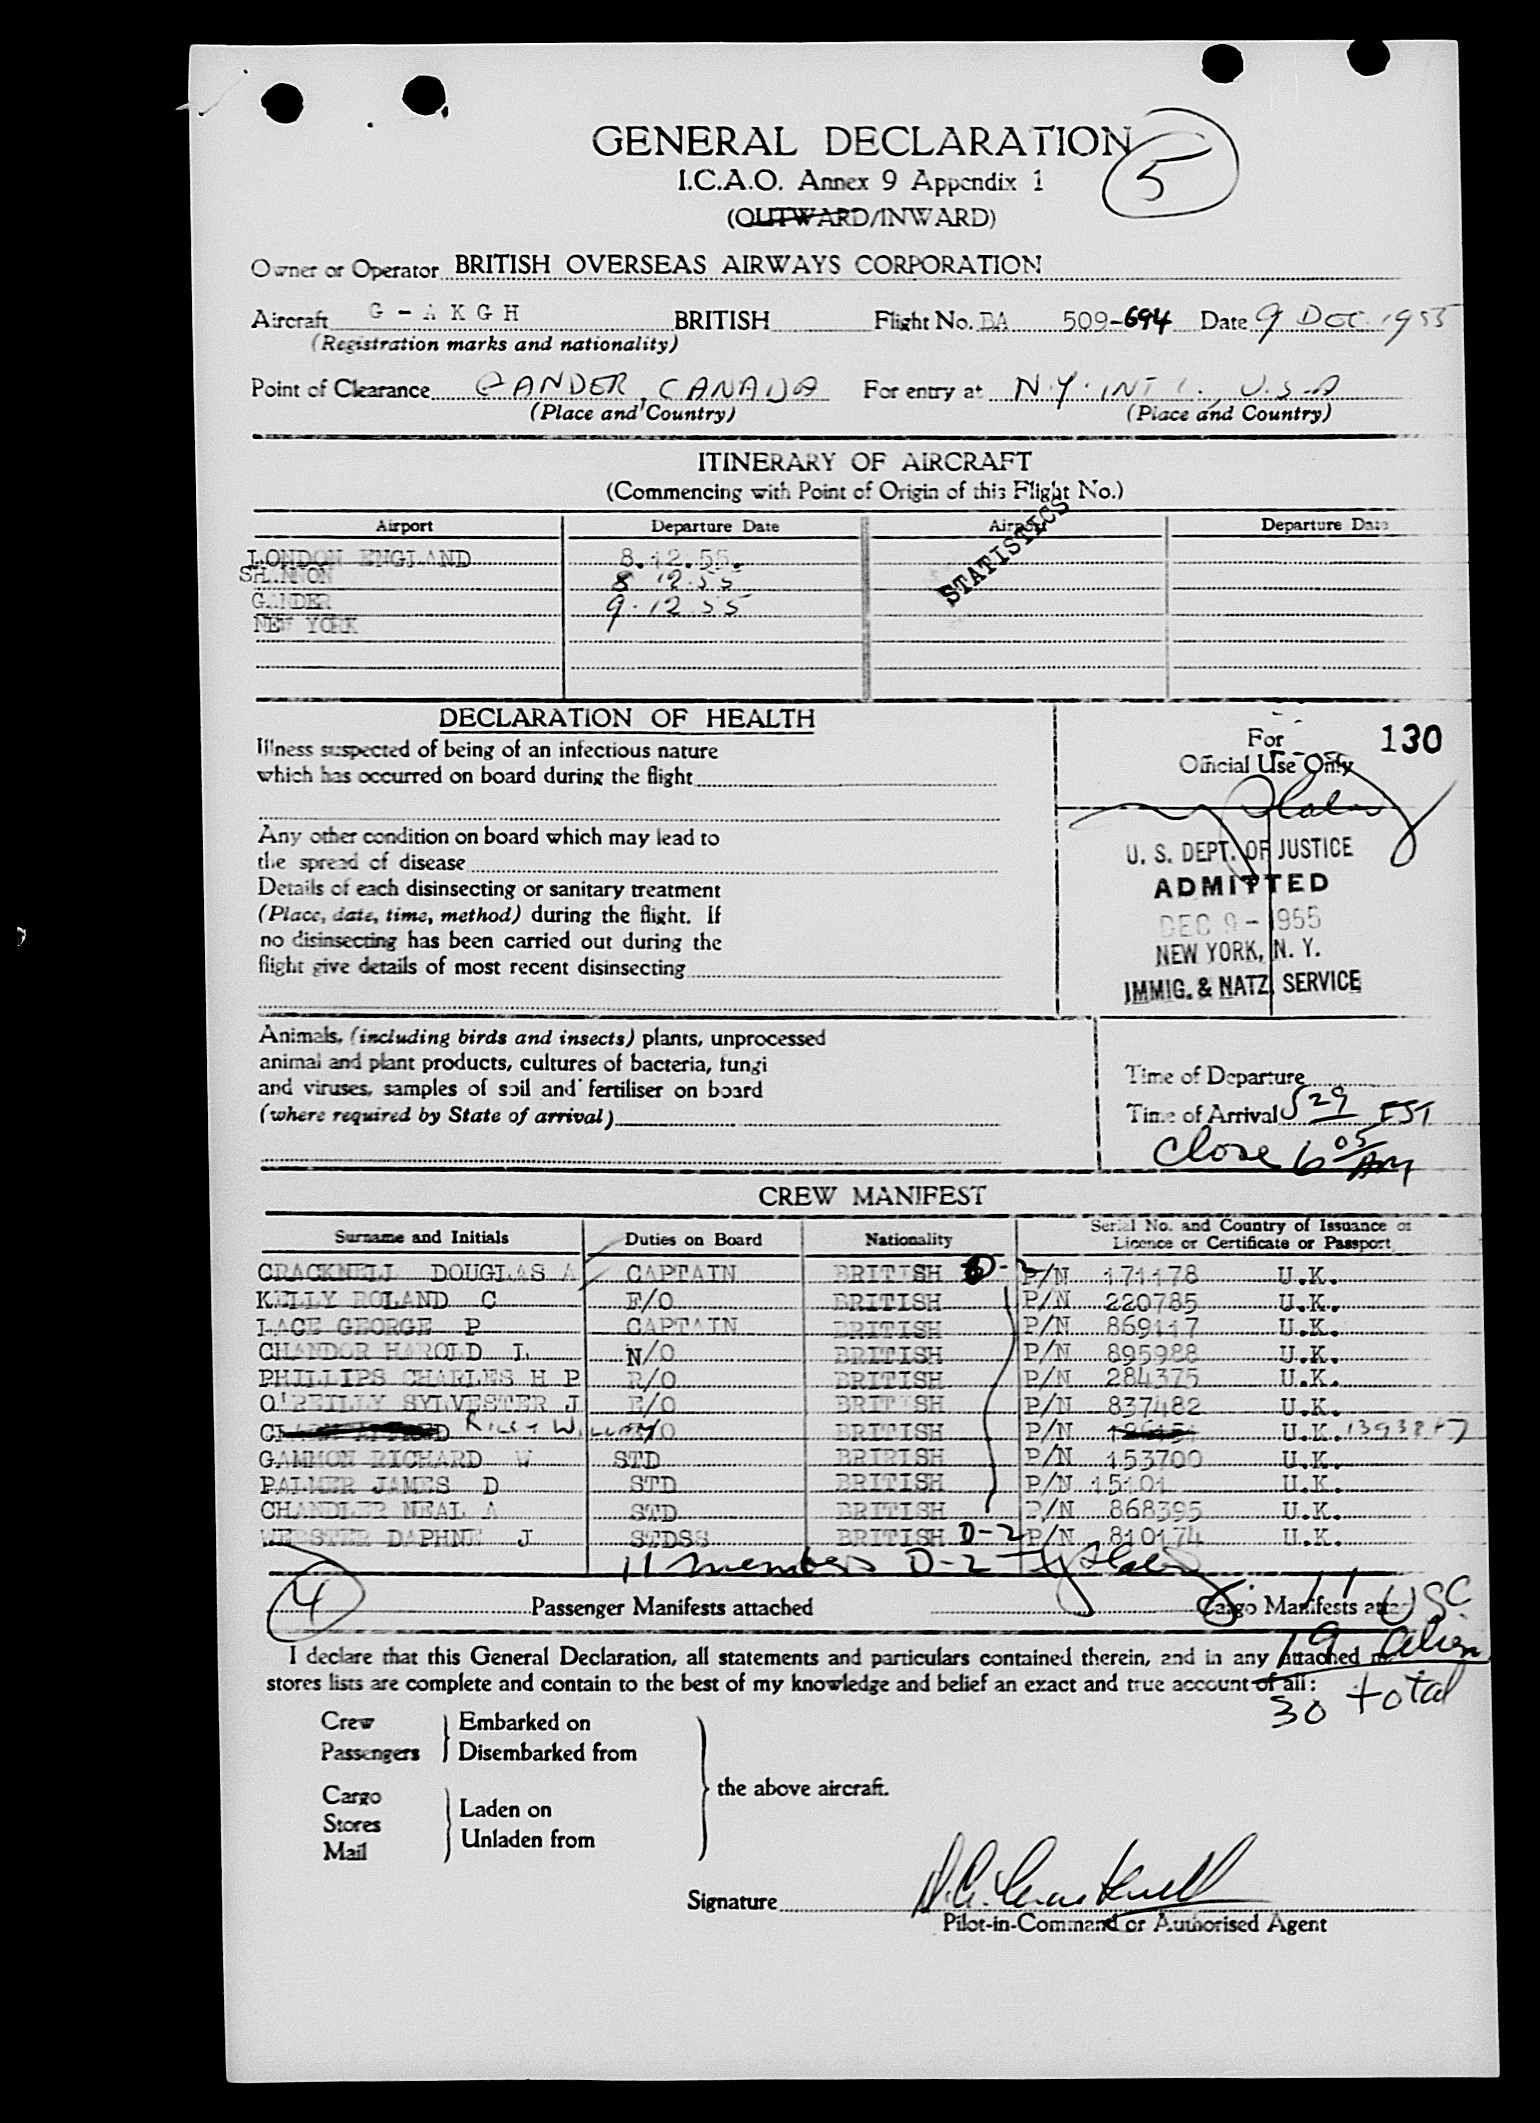 GENERAL DECLARATION
5
I.C.A.O. Annex 9 Appendix 1
(OUTWARD/INWARD)
Owner or Operator BRITISH OVERSEAS AIRWAYS CORPORATION
Aircraft G - A K G H BRITISH Flight No. BA 509-694 Date 9 DEC. 1955
(Registration marks and nationality)
Point of Clearance GANDER, CANADA For entry at N.Y. INT'L., U.S.A
(Place and Country) (Place and Country)
ITINERARY OF AIRCRAFT
(Commencing with Point of Origin of this Flight No.)
Airport Departure Date Airport Departure Date
STATISTICS
LONDON ENGLAND 8.12.55.
SHANNON 8 12.55
GANDER 9.12.55
NEW YORK
DECLARATION OF HEALTH
Illness suspected of being of an infectious nature
which has occurred on board during the flight
Any other condition on board which may lead to
the spread of disease
Details of each disinsecting or sanitary treatment
(Place, date, time, method) during the flight. If
no disinsecting has been carried out during the
flight give details of most recent disinsecting
For 130
Official Use Only
U. S. DEPT. OF JUSTICE
ADMITTED
DEC 9 - 1955
NEW YORK, N. Y.
IMMIG. & NATZ. SERVICE
Animals, (including birds and insects) plants, unprocessed
animal and plant products, cultures of bacteria, fungi
and viruses, samples of soil and fertiliser on board
(where required by State of arrival)
Time of Departure
Time of Arrival 529 EST
Close 6 05 AM
CREW MANIFEST
Surname and Initials Duties on Board Nationality Serial No. and Country of Issuance of
Licence or Certificate or Passport
CRACKNELL DOUGLAS A CAPTAIN BRITISH D-2 P/N 171178 U.K.
KELLY ROLAND C F/O BRITISH P/N 220785 U.K.
LACE GEORGE P CAPTAIN BRITISH P/N 869117 U.K.
CHANDOR HAROLD L N/O BRITISH P/N 895988 U.K.
PHILLIPS CHARLES H P R/O BRITISH P/N 284375 U.K.
O'REILLY SYLVESTER J E/O BRITISH P/N 837482 U.K.
RILEY WILLIAM /O BRITISH P/N U.K.
GAMMON RICHARD W STD BRIRISH P/N 153700 U.K.
PALMER JAMES D STD BRITISH P/N 15101 U.K.
CHANDLER NEAL A STD BRITISH P/N 868395 U.K.
WEBSTER DAPHNE J STDSS BRITISH D-2 P/N 810174 U.K.
11 members D-2
4 Passenger Manifests attached Cargo Manifests
11 USC
19 Alien
30 total
I declare that this General Declaration, all statements and particulars contained therein, and in any attached
stores lists are complete and contain to the best of my knowledge and belief an exact and true account of all:
Crew Embarked on
Passengers Disembarked from
the above aircraft.
Cargo Laden on
Stores
Unladen from
Mail
Signature D.A. Cracknell
Pilot-in-Command or Authorised Agent